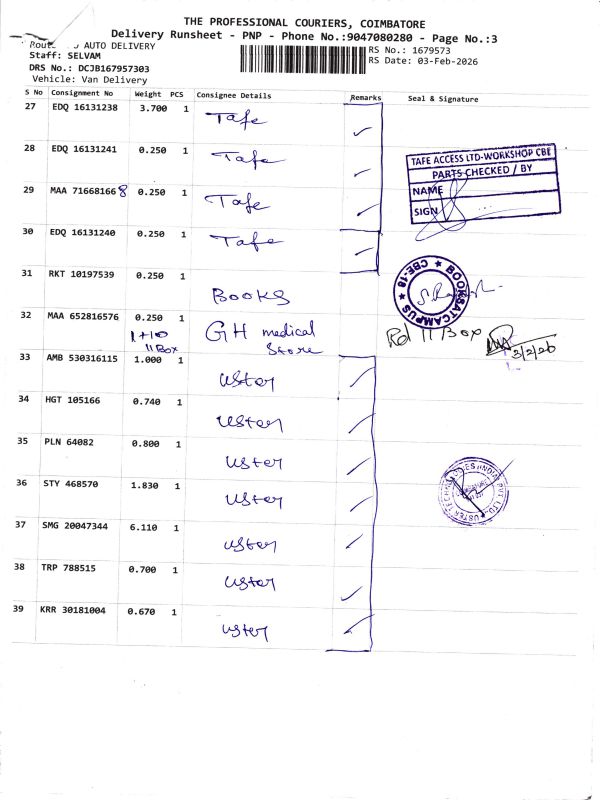 THE PROFESSIONAL COURIERS, COIMBATORE
Delivery Runsheet - PNP - Phone No.:9047080280 - Page No.:3
AUTO DELIVERY
RS No.: 1679573
Staff: SELVAM
RS Date: 03-Feb-2026
DRS No.: DCJB167957303
Vehicle: Van Delivery
S No Consignment No Weight PCS Consignee Details Remarks Seal & Signature
27 EDQ 16131238 3.700 1 Tafe ✓
28 EDQ 16131241 0.250 1 Tafe ✓
TAFE ACCESS LTD-WORKSHOP CBE
PARTS CHECKED / BY
NAME
SIGN
29 MAA 716681668 0.250 1 Tafe ✓
30 EDQ 16131240 0.250 1 Tafe ✓
31 RKT 10197539 0.250 1 BOOKS
BOOKSATCAMPUS ★ CBE-18 ★
32 MAA 652816576 0.250 1 GH medical Store
1+10
11 Box
Rd 11 Box
3/2/26
33 AMB 530316115 1.000 1 Uster ✓
34 HGT 105166 0.740 1 Uster ✓
35 PLN 64082 0.800 1 Uster ✓
36 STY 468570 1.830 1 Uster ✓
37 SMG 20047344 6.110 1 Uster ✓
38 TRP 788515 0.700 1 Uster ✓
39 KRR 30181004 0.670 1 Uster ✓